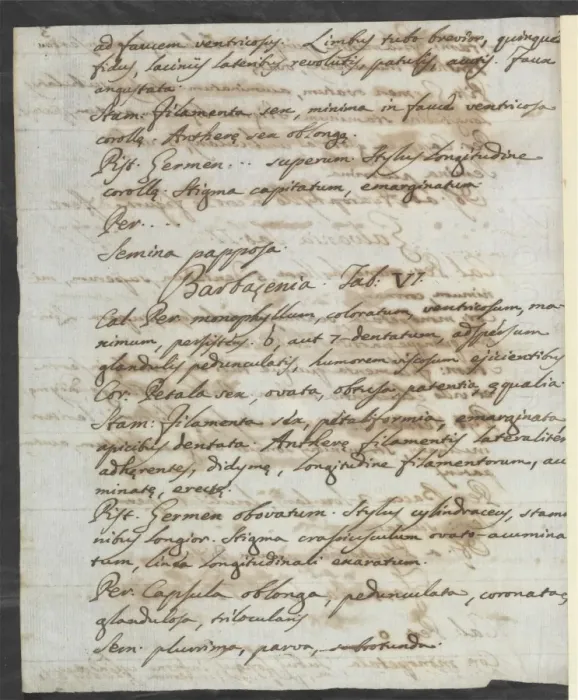 ad faucem ventricosus. Limbus tubo brevior, quinque
fidus, laciniis lateribus revolutis, patulis, acutis. Faux
angustata.
Stam: Filamenta sex, minima in fauce ventricosa
corollę. Antherę sex oblongę.
Pist. Germen... superum. Stylus longitudine
corollę. Stigma capitatum, emarginatum
Per....
Semina papposa.
Barbaçenia. Tab: VI.
Cal. Per. monophyllum, coloratum, ventricosum, ma-
nimum, persistens. 6, aut 7-dentatum, adspersum
glandulis pedunculatis, humorem viscosum ejicientibus
Cor: Petala sex, ovata, obtusa, patentia, ęqualia.
Stam: Filamenta sex, petaliformia, emarginata
apicibus dentata. Antherę filamentis lateraliter
adhęrentes, didymę, longitudine filamentorum, acu
minatę, erectę.
Pist. Germen obovatum. Stylus cylindraceus, stami
nibus longior. Stigma crassiusculum ovato-acumina
tum, linea longitudinali exaratum.
Per. Capsula oblonga, pedunculata, coronata,
glandulosa, trilocularis
Sem: plurima, parva, subrotunda.